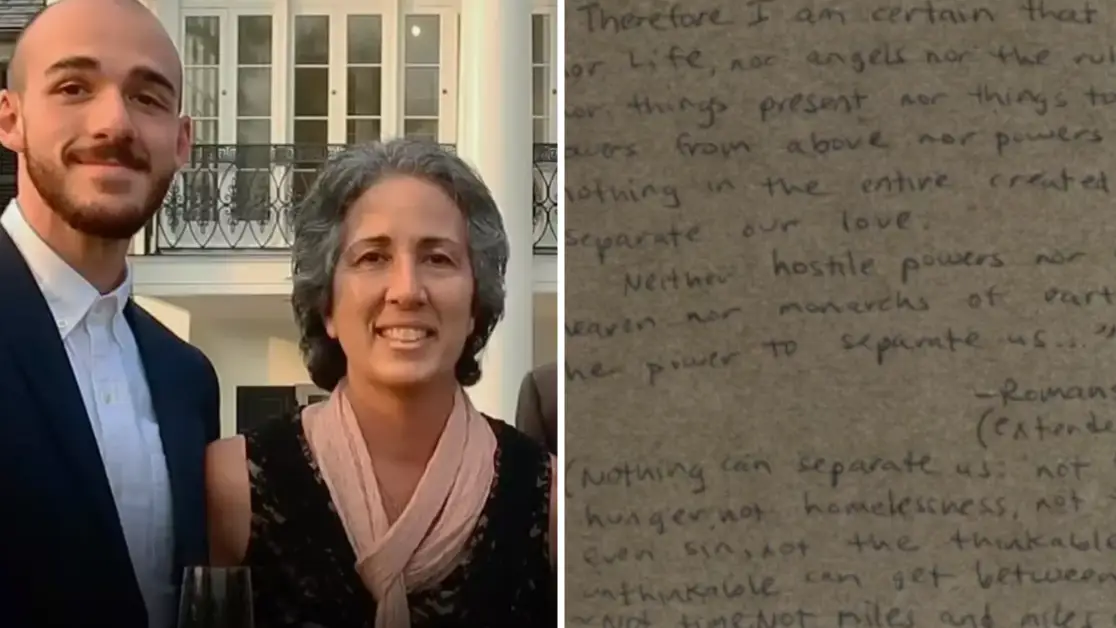 Therefore I am certain that
or Life, nor angels nor the rul
or things present nor things to
wers from above nor powers
nothing in the entire created
separate our love.
Neither hostile powers nor
eaven nor monarchs of eart
he power to separate us..."
-Romans
(extende
(Nothing can separate us: not
hunger, not homelessness, not
even sin, not the thinkable
unthinkable can get between
Not time, Not miles and miles